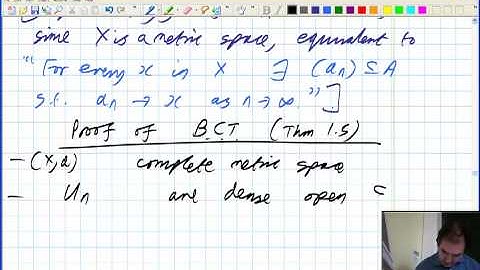 since X is a metric space, equivalent to
"For every x in X ∃ (an) ⊆ A
s.t. an → x as n → ∞."]
Proof of B.C.T (Thm 1.5)
– (X,d) complete metric space
– Un are dense open